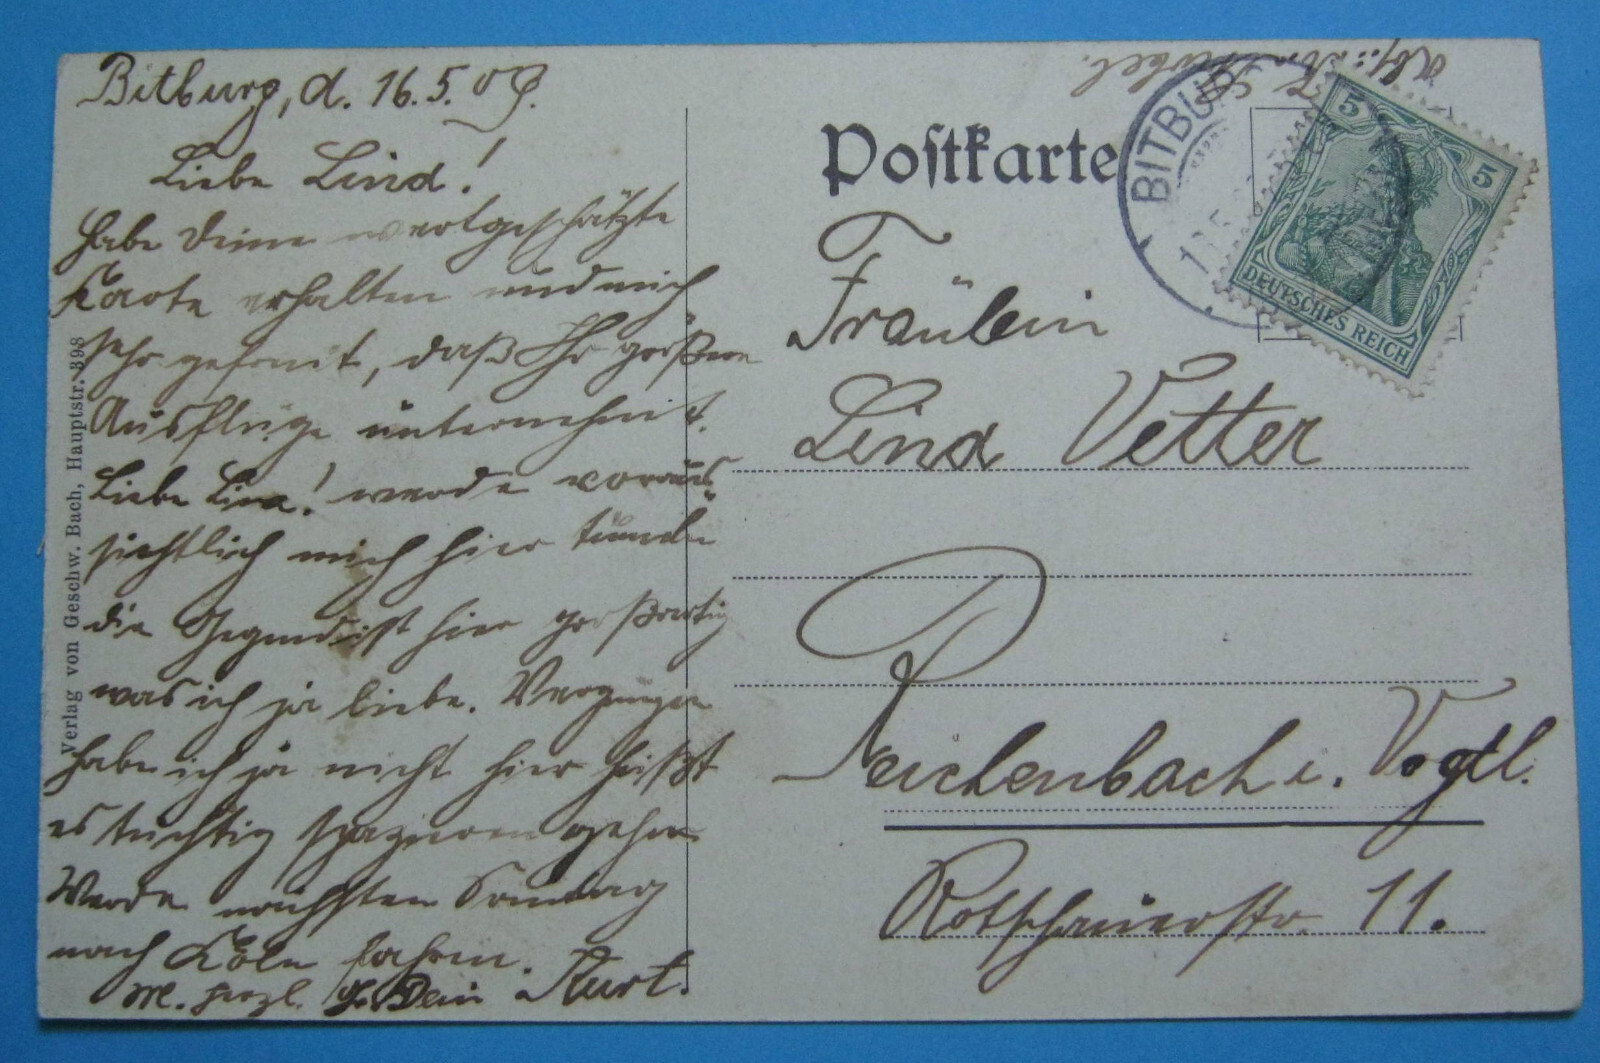 Bitburg, d. 16.5.09.
Liebe Lina!
Habe Deine wertgeschätzte
Karte erhalten und mich
sehr gefreut, daß Ihr größere
Ausflüge unternehmt.
Liebe Lina! werde voraus
sichtlich mich hier
die Gegend ist hier großartig
was ich ja liebe. Vergnügen
habe ich ja nicht hier heißt
es tüchtig spazieren gehen
Werde nächsten Sonntag
nach Köln fahren.
M. herzl. Gr. Dein Kurt.
Verlag von Geschw. Bach, Hauptstr. 398
Abs.:
Postkarte
BITBURG
5
5
DEUTSCHES REICH
Fräulein
Lina Vetter
Reichenbach i. Vogtl.
Rotschauerstr. 11.